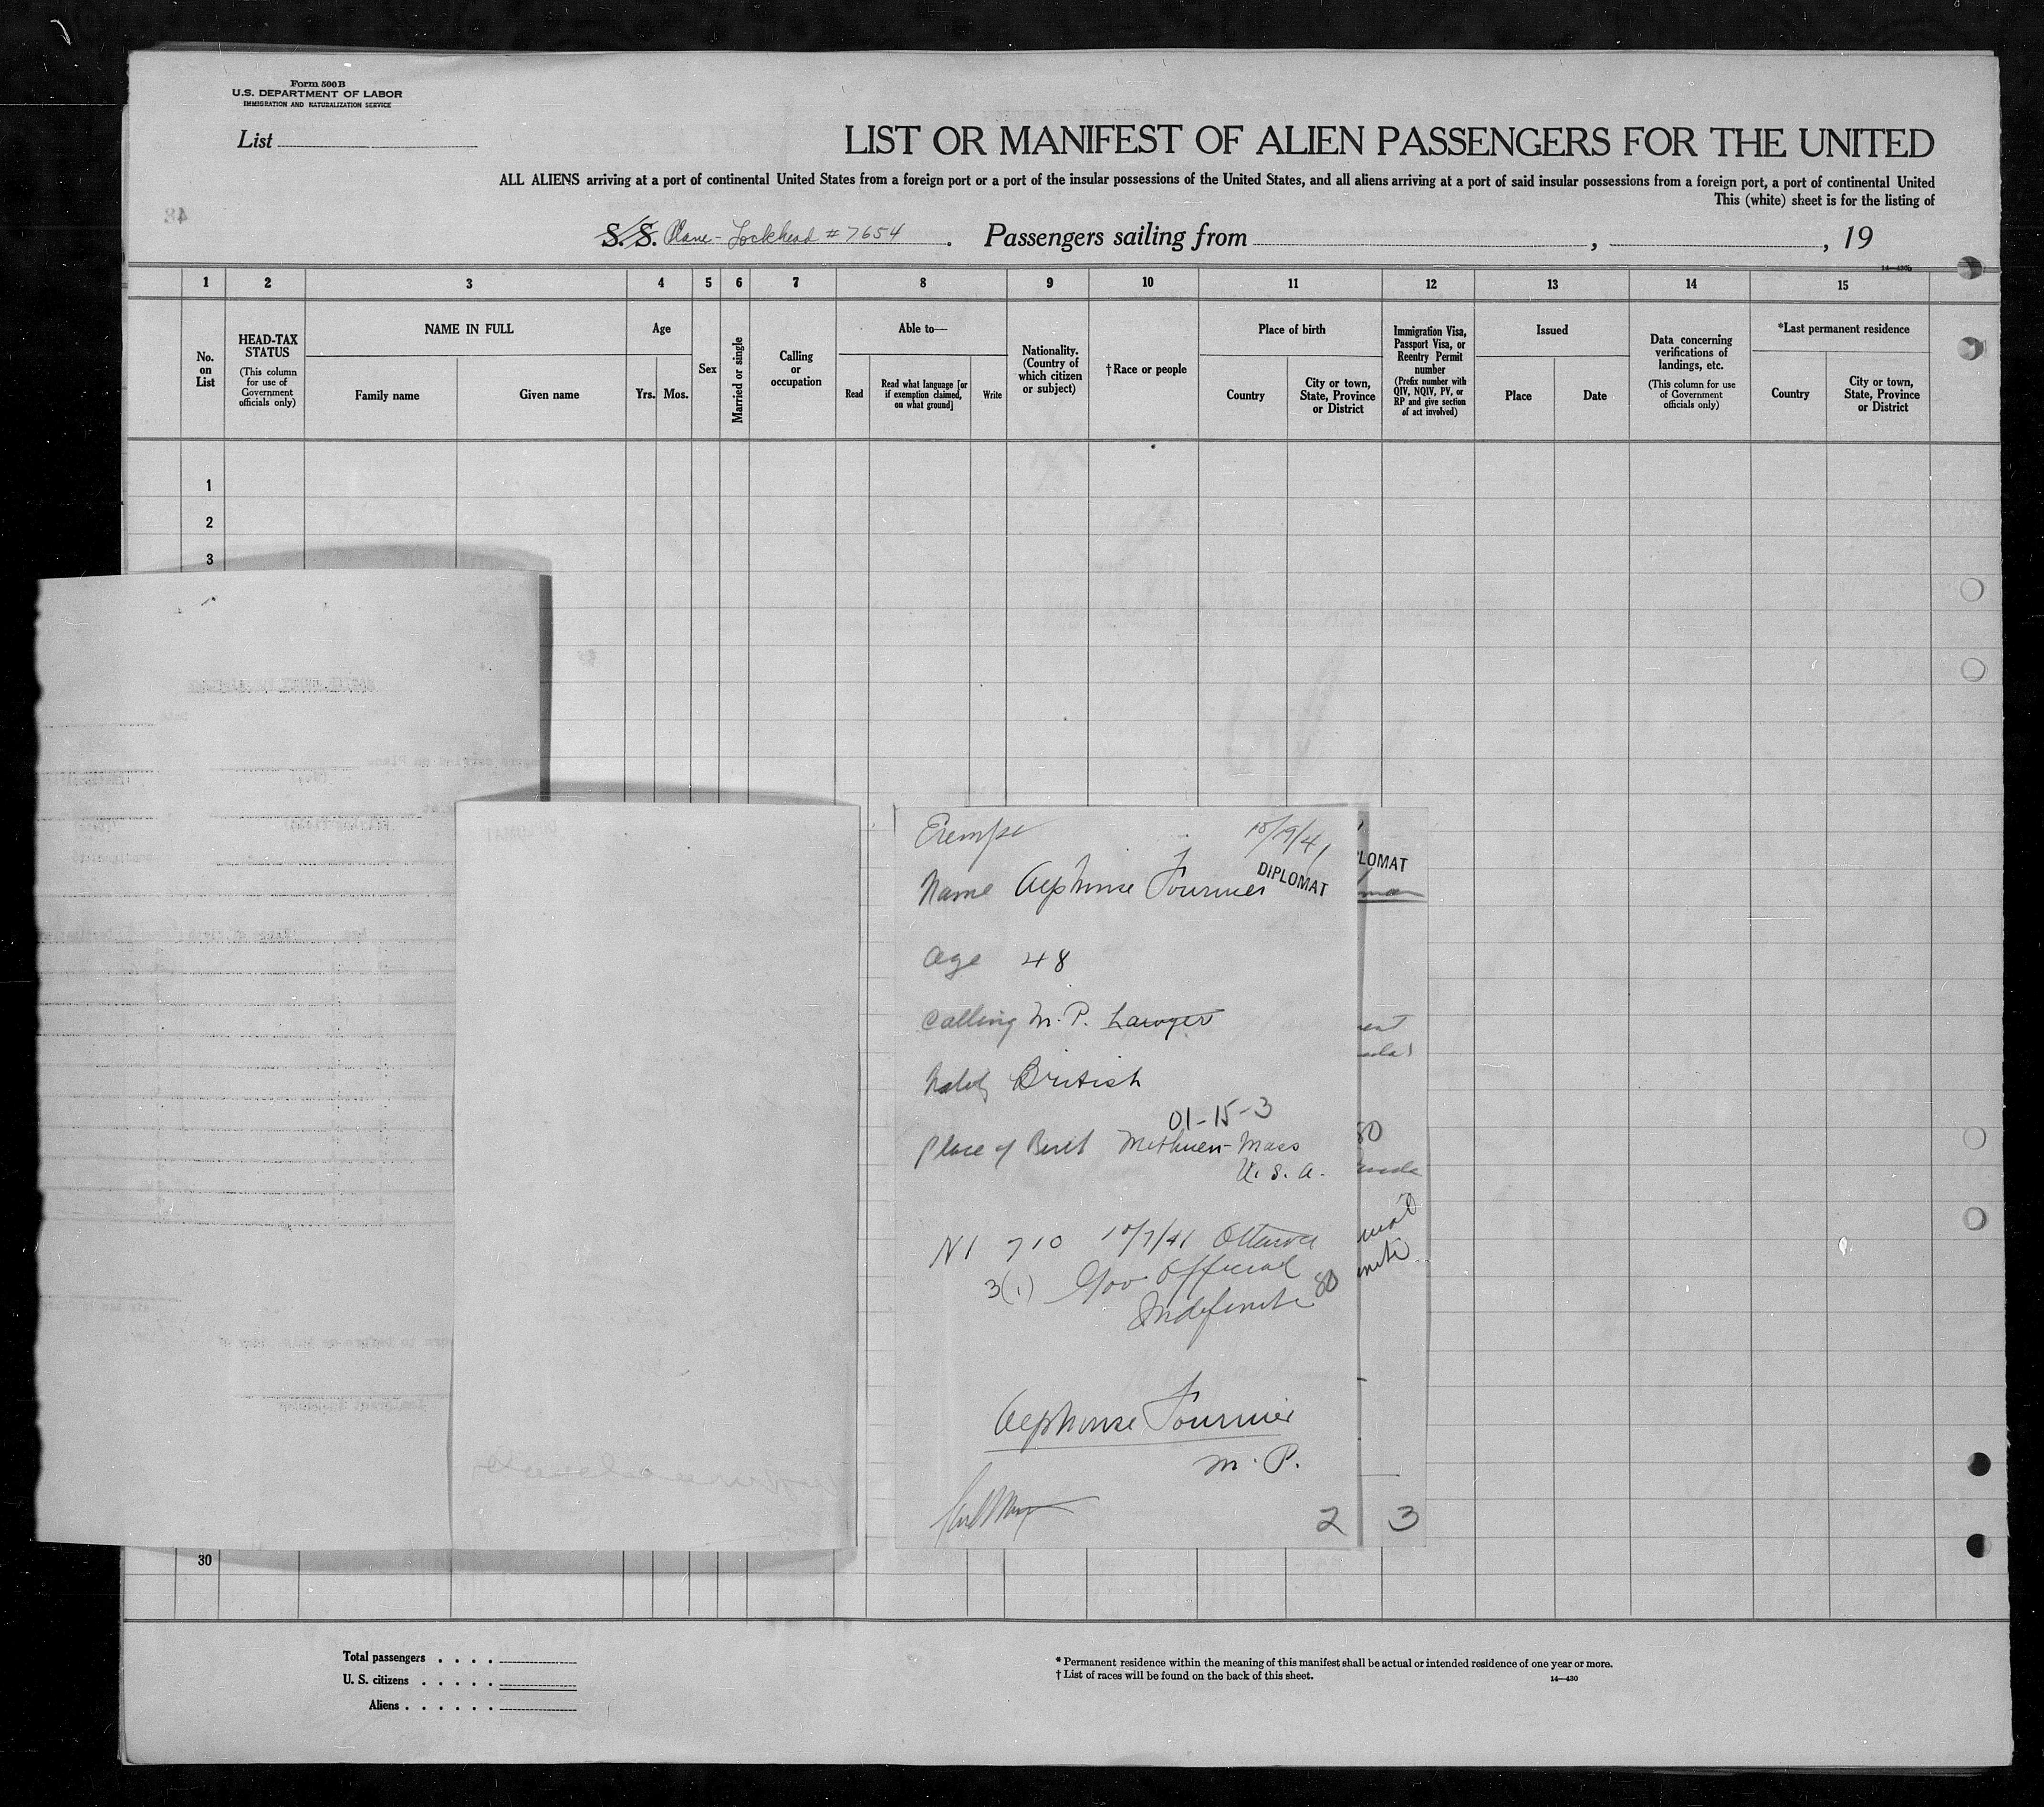 Form 500 B
U.S. DEPARTMENT OF LABOR
IMMIGRATION AND NATURALIZATION SERVICE
List
LIST OR MANIFEST OF ALIEN PASSENGERS FOR THE UNITED
ALL ALIENS arriving at a port of continental United States from a foreign port or a port of the insular possessions of the United States, and all aliens arriving at a port of said insular possessions from a foreign port, a port of continental United
This (white) sheet is for the listing of
48
S. S. Plane - Lockheed # 7654 . Passengers sailing from , , 19
14—430b
1 2 3 4 5 6 7 8 9 10 11 12 13 14 15
No. on List
HEAD-TAX STATUS
(This column for use of Government officials only)
NAME IN FULL
Family name
Given name
Age
Yrs. Mos.
Sex
Married or single
Calling or occupation
Able to—
Read
Read what language [or if exemption claimed, on what ground]
Write
Nationality. (Country of which citizen or subject)
†Race or people
Place of birth
Country
City or town, State, Province or District
Immigration Visa, Passport Visa, or Reentry Permit number
(Prefix number with QIV, NQIV, PV, or RP and give section of act involved)
Issued
Place
Date
Data concerning verifications of landings, etc.
(This column for use of Government officials only)
*Last permanent residence
Country
City or town, State, Province or District
1
2
3
Exempt 10/19/41
DIPLOMAT
Name Alphonse Fournier
Age 48
Calling M. P. Lawyer
Natly British
01-15-3
Place of Birth Methuen - Mass
U. S. A.
N1 710 10/7/41 Ottawa
3(1) Gov Official
Indefinite 80
Alphonse Fournier
M. P.
2
LOMAT
80
3
30
Total passengers . . . .
U. S. citizens . . . . .
Aliens . . . . . .
* Permanent residence within the meaning of this manifest shall be actual or intended residence of one year or more.
† List of races will be found on the back of this sheet.
14—430